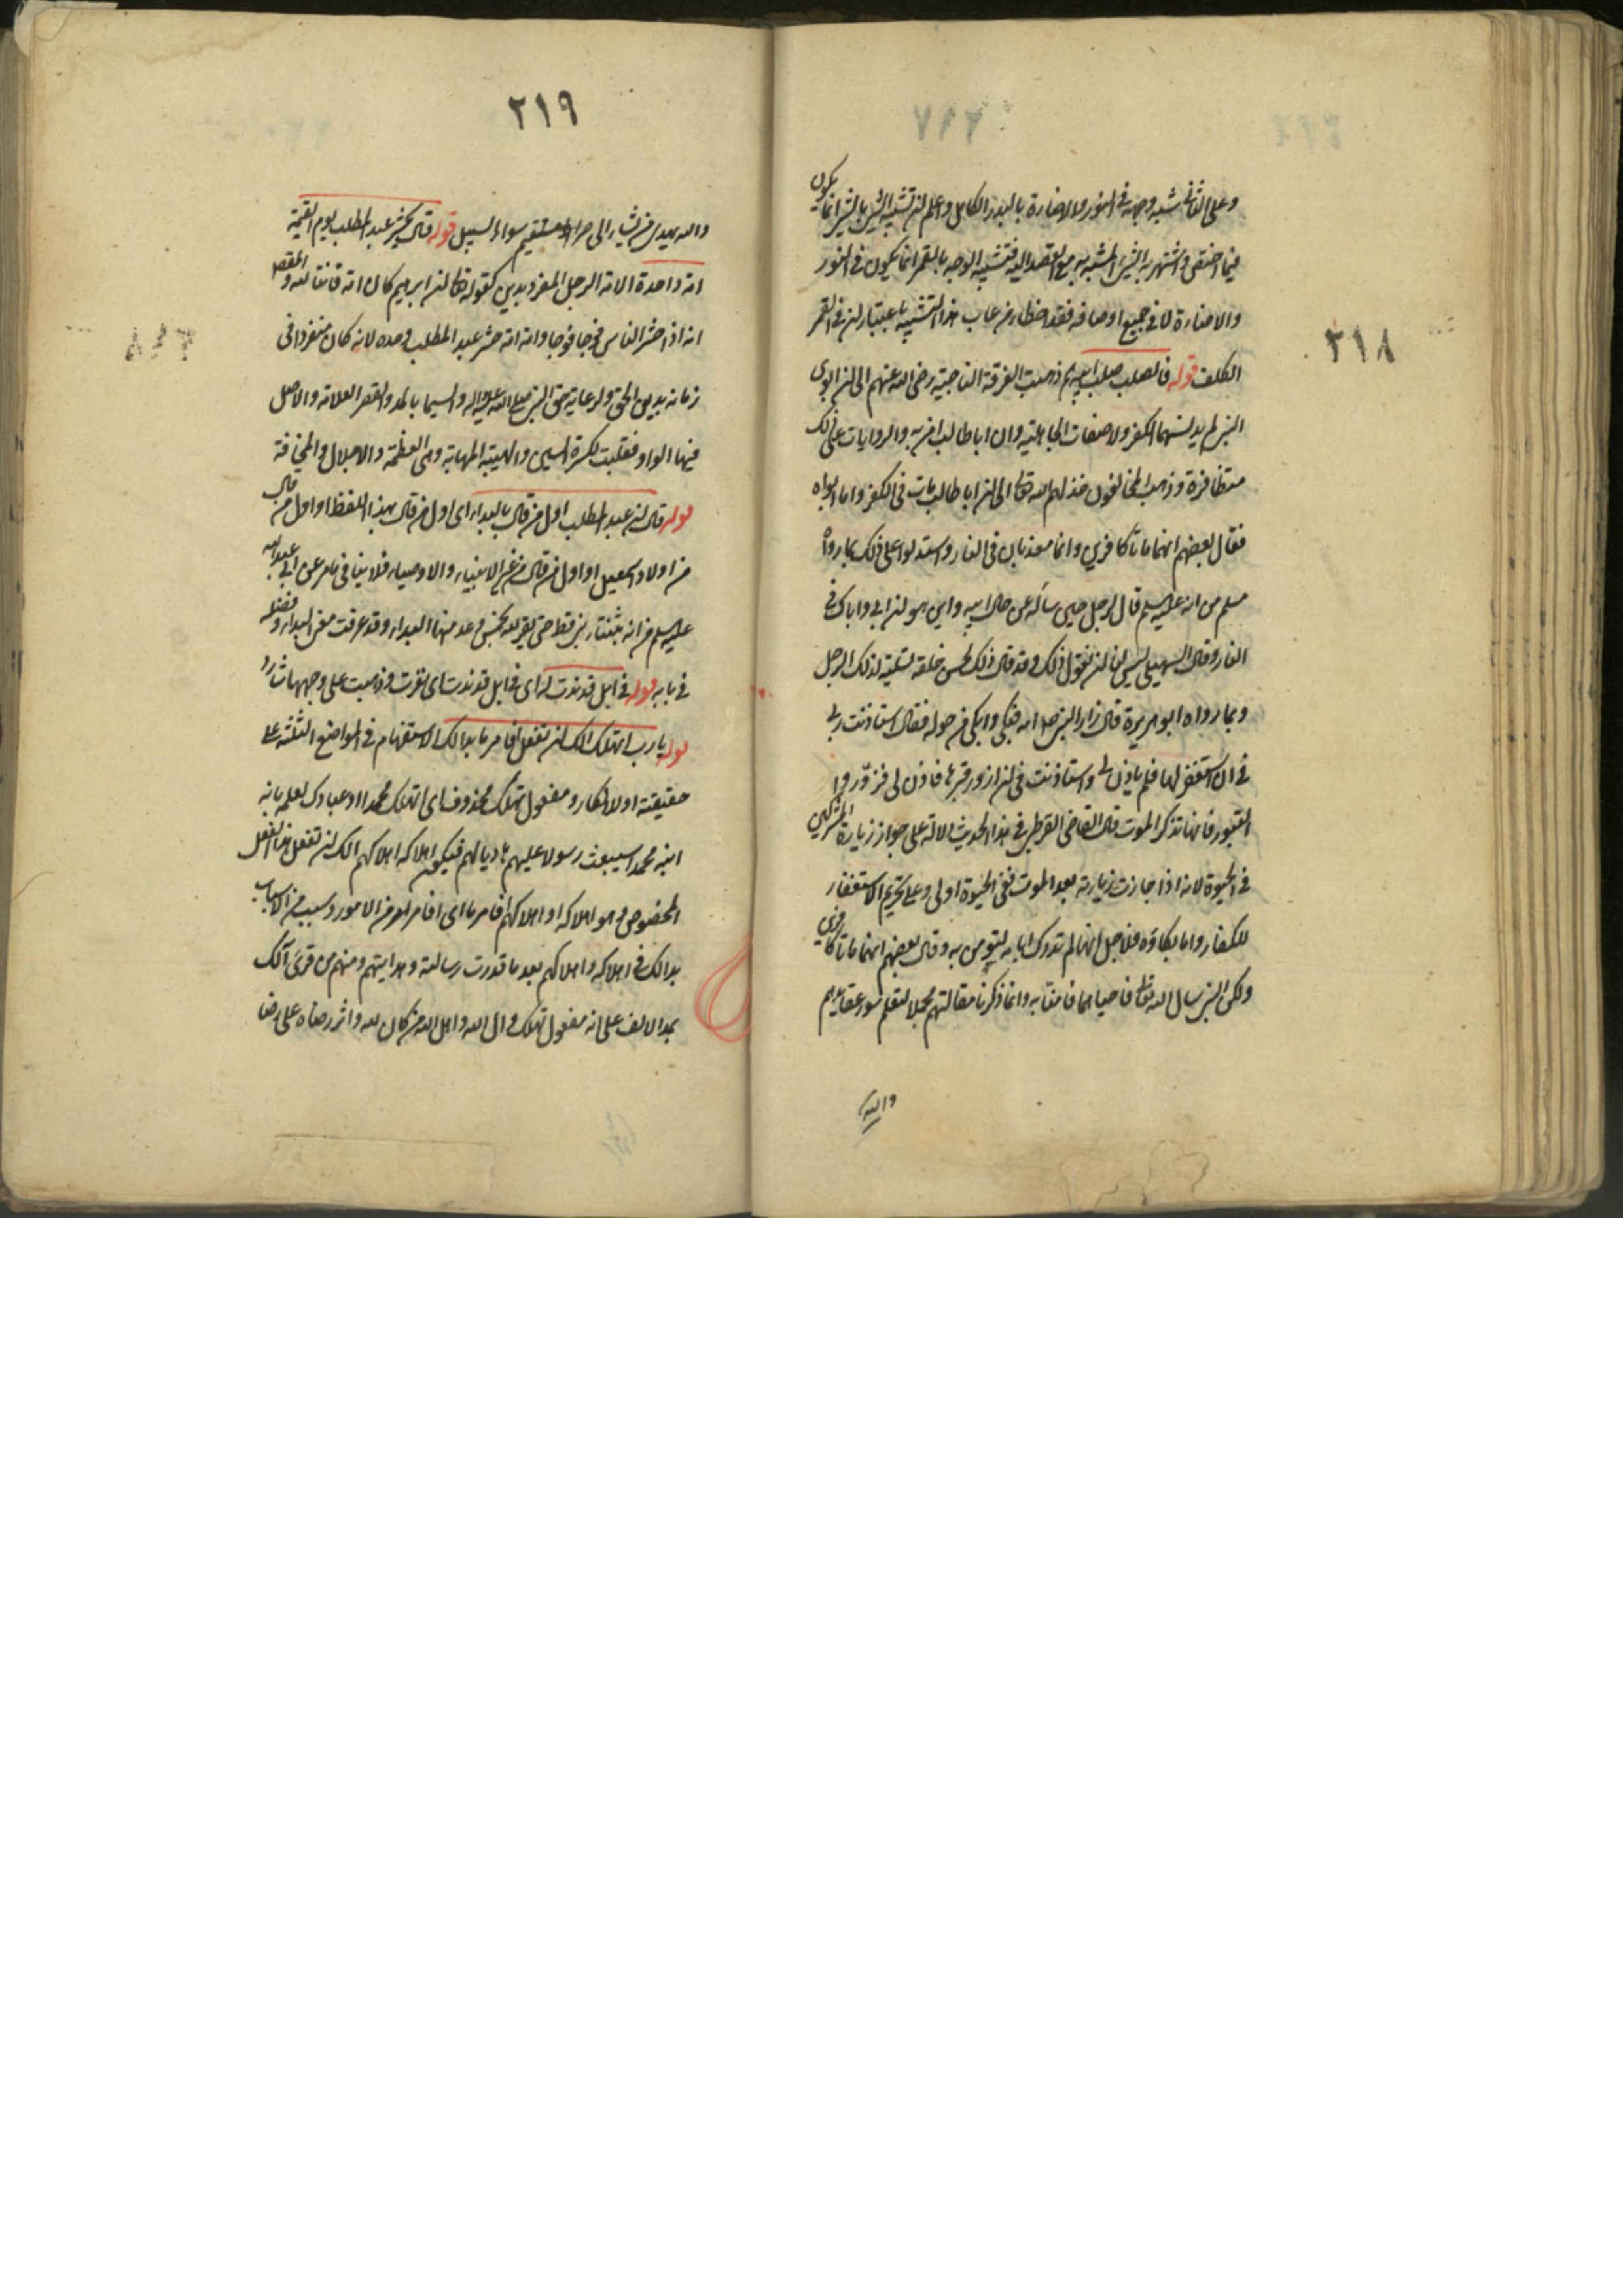 ٢١٨
وعلى الثاني شبه وجهه في النور والاضاءة بالبدر الكامل واعلم ان تشبيه الشئ بالشئ انما يكون
فيما اختص واشتهر به الشئ المشبه به مع القصد اليه فتشبيه الوجه بالقمر انما يكون في النور
والاضاءة لا في جميع اوصافه فقد اخطاء من عاب هذا التشبيه باعتبار ان في القمر
الكلف قوله فالصلب صلب ابيه ذهبت الفرقة الناجية رضي الله عنهم الى ان ابوى
النبي لم يدنسهما الكفر ولا صفات الجاهلية وان اباطالب امن به والروايات على ذلك
متظافرة وذهب المخالفون خذلهم الله تعالى الى ان اباطالب مات في الكفر واما ابواه
فقال بعضهم انهما ماتا كافرين وانهما معذبان في النار واستدلوا على ذلك بما رواه
مسلم من انه عليه السلم قال لرجل حين سأله عن حال ابيه واين هو ان ابي واباك في
النار وقال السهيلي ليس لنا ان نقول ذلك وقد قال ذلك لحسن خلقه تسلية لذلك الرجل
وبما رواه ابو هريرة قال زار النبي صلى امه فبكى وابكى من حوله فقال استأذنت ربي
في ان استغفر لها فلم ياذن لي واستاذنت في ان ازور قبرها فاذن لي فزوروا
القبور فانها تذكر الموت قال القاضي القرطبي في هذا الحديث دلالة على جواز زيارة المشركين
في الحيوة لانه اذا جازت زيارته بعد الموت ففي الحيوة اولى وعلى تحريم الاستغفار
للكفار واما بكاؤه فلاجل انها لم تدرك ايامه لتؤمن به وقال بعضهم انهما ماتا كافرين
ولكن النبي سال الله تعالى فاحياهما فامنا به وانما ذكرنا مقالتهم مجملا لتعلم سوء عقايدهم
والله
٢١٩
والله يهدي من يشاء الى صراط مستقيم سواء السبيل قوله قال يحشر عبد المطلب يوم القيمة
امة واحدة الامة الرجل المنفرد بدين كقوله تعالى ان ابرهيم كان امة قانتا لله والمقصود
انه اذا حشر الناس فوجا فوجا وامة امة حشر عبد المطلب وحده لانه كان منفردا في
زمانه بدين الحق ولرعاية حق النبي صلى الله عليه واله والسيما بالمد والقصر العلامة والاصل
فيها الواو فقلبت لكسرة السين والهيبة المهابة وهى العظمة والاجلال والمخافة
قوله قال ان عبد المطلب اول من قال بالبداء اى اول من قال بهذا اللفظ او اول من قال
من اولاد اسمعيل او اول من قال من غير الانبياء والاوصياء فلا ينافي ما مر عن ابي عبدالله
عليه السلم من انه ما تنبأ نبي قط حتى يقر لله بخمس وعد منها البداء وقد عرفت معنى البداء وفضله
في بابه قوله في ابل قد ندت له اى في ابل قد ندت اى نفرت وذهبت على وجهها شاردة
قوله يا رب اتهلك الك ان تفعل فامر ما بدالك الاستفهام في المواضع الثلثة على
حقيقته او للانكار ومفعول تهلك محذوف اى اتهلك محمدا او عبادك لعلمه بانه
ابنه محمد سيبعث رسولا عليهم هاديا لهم فيكون اهلاكه اهلاكهم الك ان تفعل هذا الفعل
المخصوص وهو اهلاكه او اهلاكهم فامر ما اى فامر لامر من الامور وسبب من الاسباب
بدالك في اهلاكه واهلاكهم بعد ما قدرت رسالته وهدايتهم ومنهم من قرئ آلك
بمد الالف على انه مفعول تهلك وال الله واهل الله من كان لله واثر رضاه على رضا